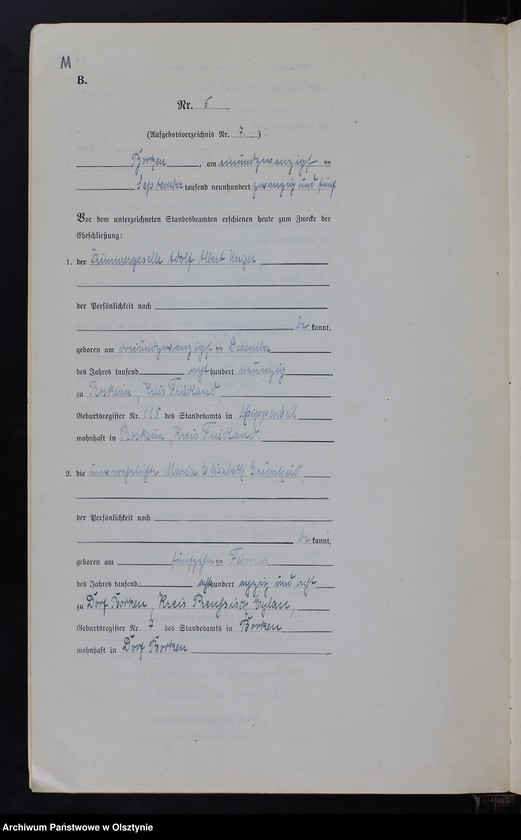 M
B.
Nr. 6
(Aufgebotsverzeichnis Nr. 7)
Borken, am einundzwanzigsten
September tausend neunhundert zwanzig und fünf
Vor dem unterzeichneten Standesbeamten erschienen heute zum Zwecke der
Eheschließung:
1. der Zimmergeselle Adolf Albert Unger,
der Persönlichkeit nach
be kannt,
geboren am dreiundzwanzigsten Dezember
des Jahres tausend acht hundert neunzig
zu Roskeim, Kreis Friedland,
Geburtsregister Nr. 118 des Standesamts in Schippenbeil
wohnhaft in Roskeim, Kreis Friedland.
2. die unverehelichte Maria Elisabeth
der Persönlichkeit nach
be kannt,
geboren am fünfzehnten Februar
des Jahres tausend acht hundert achtzig und acht
zu Dorf Borken, Kreis Preussisch Eylau,
Geburtsregister Nr. 7 des Standesamts in Borken
wohnhaft in Dorf Borken.
Archiwum Państwowe w Olsztynie